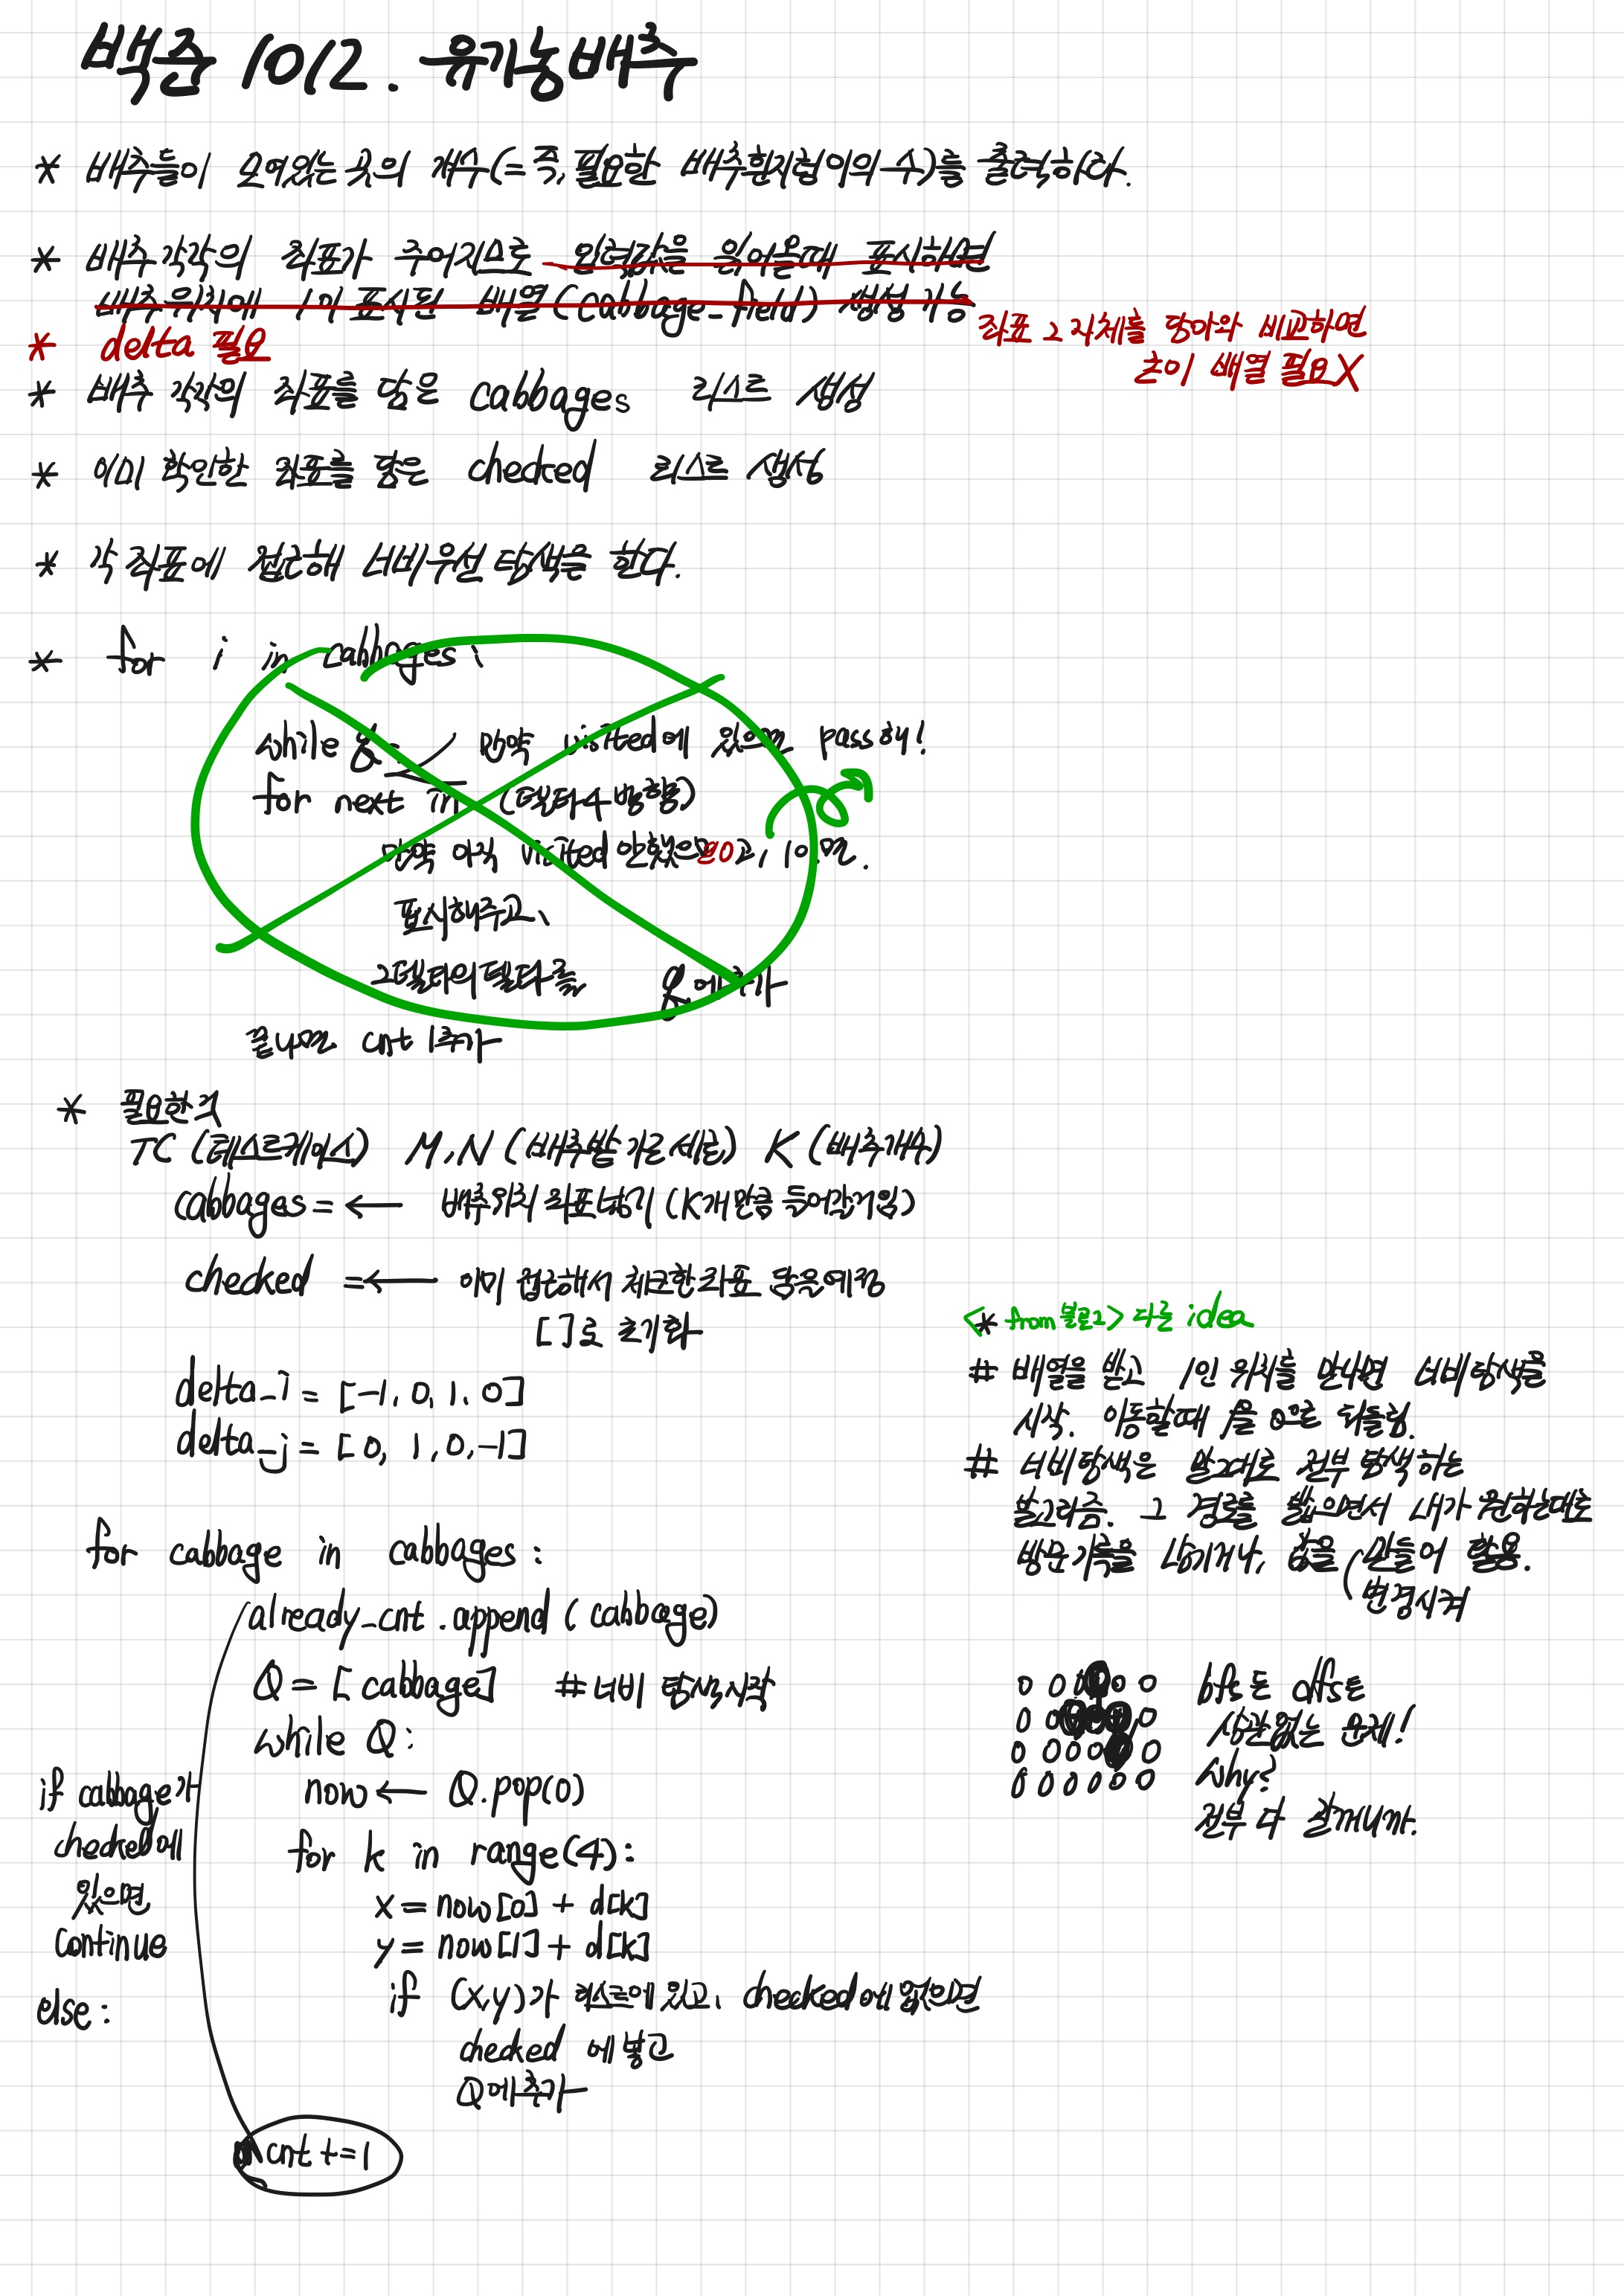 백준 1012. 유기농배추
* 배추들이 모여있는 곳의 개수(=즉, 필요한 배추흰지렁이의 수)를 출력하라.
* 배추 각각의 좌표가 주어지므로 입력값을 읽어올때 표시하면
배추위치에 1이 표시된 배열(Cabbage_field) 생성 가능
좌표 그 자체를 담아와 비교하면
굳이 배열 필요X
* delta 필요
* 배추 각각의 좌표를 담은 cabbages 리스트 생성
* 이미 확인한 좌표를 담은 checked 리스트 생성
* 각 좌표에 접근해 너비우선 탐색을 한다.
* for i in cabbages :
while Q : 만약 visited에 있으면 pass해!
for next in (델타 4방향)
만약 아직 visited 안했으 고, 1이면.
표시해주고、
그델타의 델타를 Q에추가
끝나면 cnt 1추가
* 필요한것
TC (테스트케이스) M,N (배추밭 가로세로) K (배추개수)
cabbages = ← 배추위치 좌표넣기 (K개 만큼 들어갈거임)
checked = ← 이미 접근해서 체크한좌표 담을예정
[ ]로 초기화
delta_i = [-1, 0, 1, 0]
delta_j = [0, 1, 0, -1]
for cabbage in cabbages :
already_cnt.append (cabbage)
Q = [cabbage] # 너비 탐색시작
while Q :
now ← Q.pop(0)
for k in range(4) :
x = now[0] + d[k]
y = now[1] + d[k]
if (x,y)가 리스트에 있고, checked에 없으면
checked 에 넣고
Q에추가
if cabbage가
checked에
있으면
continue
else :
cnt += 1
<* from 블로그> 다른 idea
# 배열을 받고 1인 위치를 만나면 너비탐색을
시작. 이동할때 1을 0으로 뒤들림.
# 너비탐색은 말그대로 전부 탐색 하는
알고리즘. 그 경로를 밟으면서 내가 원하는대로
방문기록을 남기거나, 값을 만들어 활용.
(변경시켜
bfs든 dfs든
상관없는 문제!
why?
전부 다 갈꺼니까.